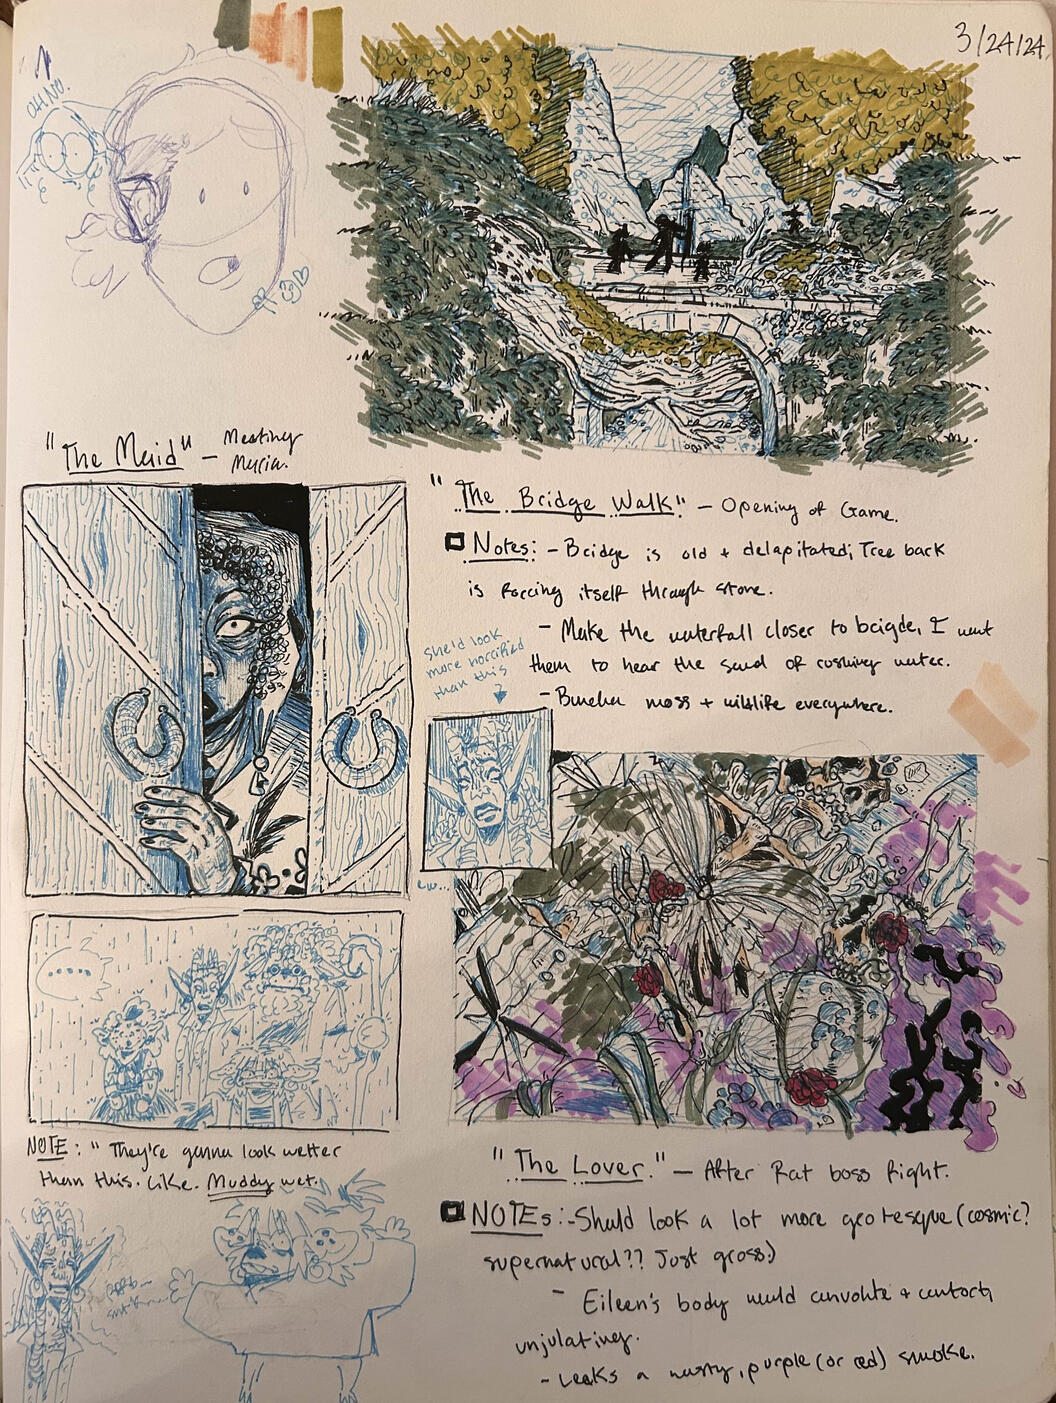 3/24/24
OH NO.
"The Maid" - Meeting
Maria.
"The Bridge Walk" - Opening of Game.
Notes: - Bridge is old + delapitated; Tree back
is forcing itself through stone.
- Make the waterfall closer to bridge, I want
them to hear the sound of rushing water.
- Buncha moss + wildlife everywhere.
should look
more horrified
than this
ew...
....
NOTE: "They're gonna look wetter
than this. Like. Muddy wet.
"The Lover." - After Rat boss fight.
NOTEs: - Should look a lot more grotesque (cosmic?
supernatural?? Just gross)
- Eileen's body would convolute + contort,
unjulating.
- Leaks a nasty, purple (or red) smoke.